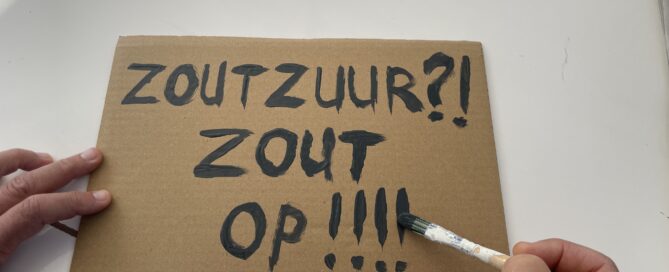 ZOUTZUUR?!
ZOUT
OP !!!!